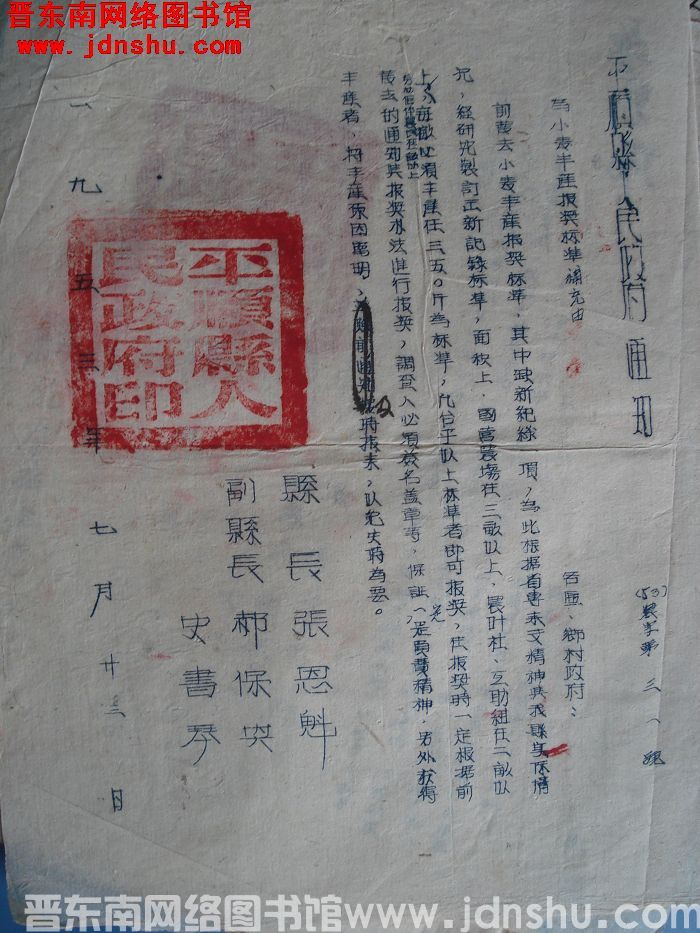 晋东南网络图书馆
www.jdnshu.com
平顺县人民政府通知
(53)農字第三一號
為小麦丰產报奖标準補充由
各區、鄉村政府：
前發去小麦丰產报奖标準，其中破新紀錄一項，為此根据省專来文精神與我縣实际情
况，経研究製訂出新記錄标準，面积上，國营農場在三畝以上，農叶社、互助組在二畝以
上，每畝必須丰產在三五〇斤為标準，凡合乎以上标準者即可报奖，在报奖時一定根据前
發去的通知與报奖办法進行报奖，調查人必須簽名盖章等，保証完一定負責精神，另外获得
丰產者，将丰產原因寫明，及時报来，以免失時為要。
縣長張恩魁
副縣長郝保英
史書琴
一九五三年七月廿三日
平順縣人民政府印
晋东南网络图书馆www.jdnshu.com